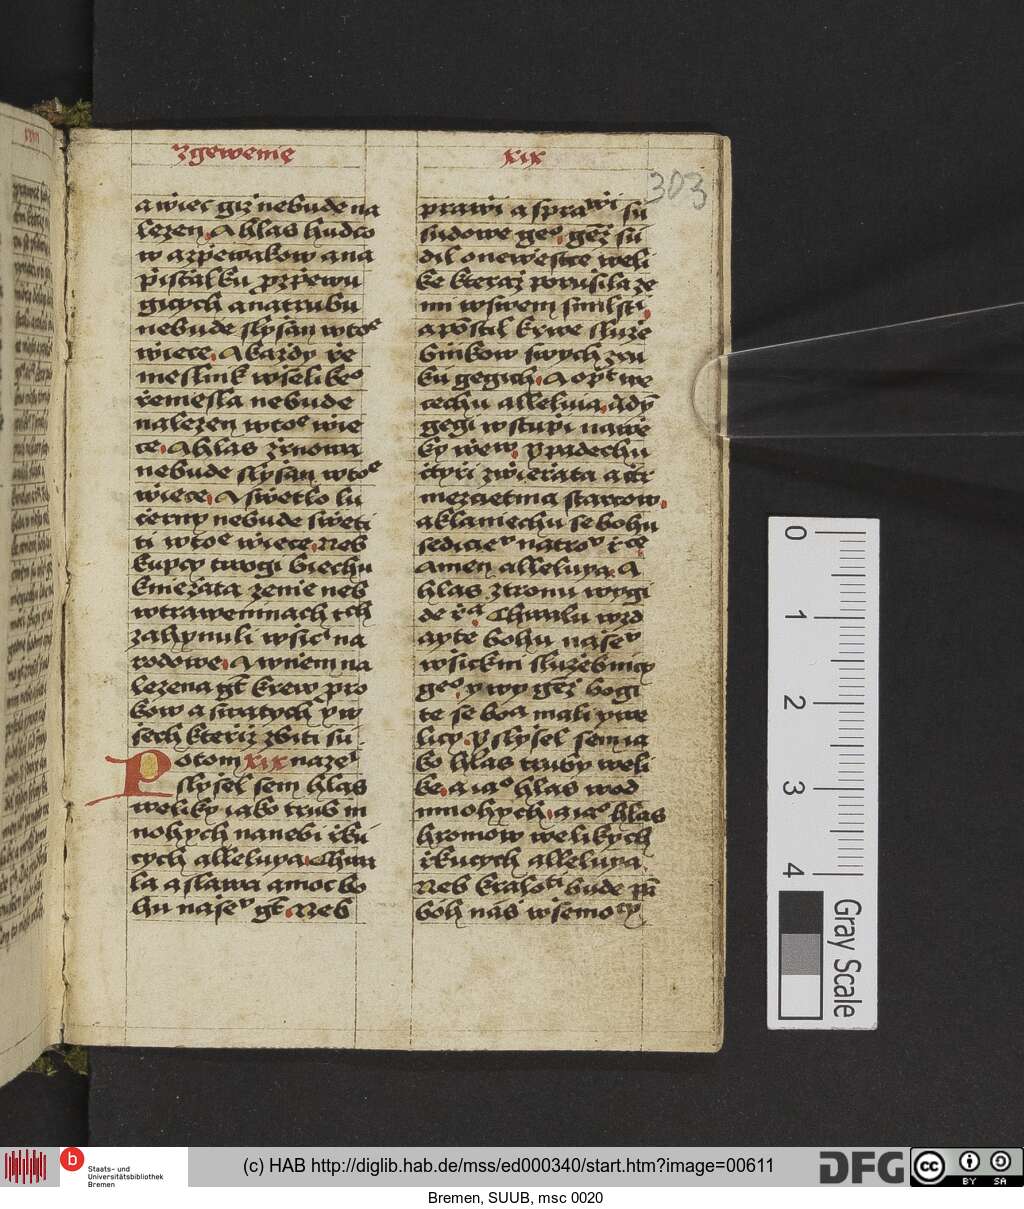 zgewenie
xix
303
a wiec giz nebude na
lezen. A hlas hudco
w azpewakow ana
pistalku przpewu
gicych anatrubu
nebude slyssan wtoᵉ
wiece. A kazdy rze
meslnik wsselikeᵒ
rzemesla nebude
nalezen wtoᵉ wie
ce. A hlas zrnowa
nebude slyssan wtoᵉ
wiece. A swetlo lu
cerny nebude sweti
ti wtoᵉ wiece. Neb
kupcy twogi biechu
kniezata zemie neb
wtrawennnach tch
zahynuli wsici na
rodowe. A wniem na
lezena gt krew pro
kow a swatych yw
sech kteriz zbiti su
Potom xix naze
slyssel sem hlas
weliky iako trub m
nohych nanebi rzku
cych alleluya. Chwa
la aslawa amoc bo
hu nasseᵛ gt. Neb
prawi a sprawi su
sudowe geᵒ. gez su
dil onewestce weli
ke kteraz porussila ze
mi wswem smilsti.
apomstil krwe sluze
bnikow swych zru
ku gegich. A opt we
cechu alleluia. A dym
gegi wstupi nawe
ky wew. y padechu
ctyri zwierzata a ctr
mezcietma starcow.
aklaniechu se bohu
sediciᵉᵛ natroᵛ rzce
Amen alleluya. A
hlas ztronu wygi
de rza. Chwalu wzd
ayte bohu nasseᵛ
wsickni sluzebnicy
geᵒ y wy gez bogi
te se boᵃ mali ywe
licy. y slyssel sem ia
ko hlas truby weli
ke. a iaᵒ hlas wod
mnohych. aiaᵒ hlas
hromow welikych
rzkucych alleluya.
Neb kralowᵗⁱ bude pan
boh nas wssemoᶜʸ
0 1 2 3 4
Gray Scale
b
Staats- und
Universitätsbibliothek
Bremen
(c) HAB http://diglib.hab.de/mss/ed000340/start.htm?image=00611
DFG
cc BY SA
Bremen, SUUB, msc 0020